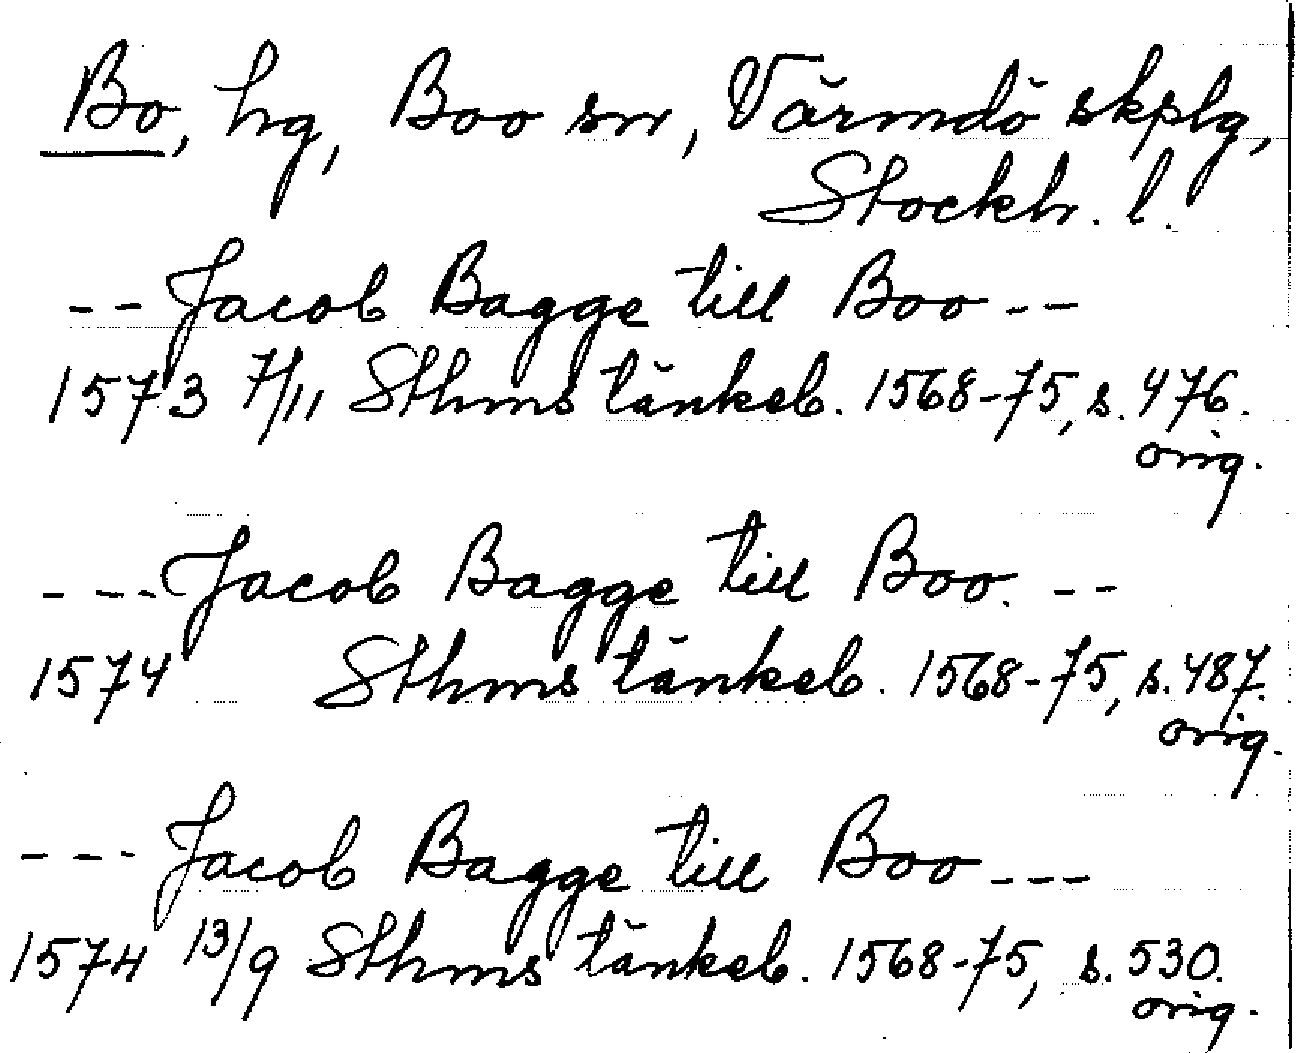 Bo, hg, Boo sn, Värmdö skplg,
Stockh. l.
-- Jacob Bagge till Boo --
1573 7/11 Sthms tänkeb. 1568-75, s. 476.
orig.
--- Jacob Bagge till Boo. --
1574 Sthms tänkeb. 1568-75, s. 487.
orig.
--- Jacob Bagge till Boo ---
1574 13/9 Sthms tänkeb. 1568-75, s. 530.
orig.